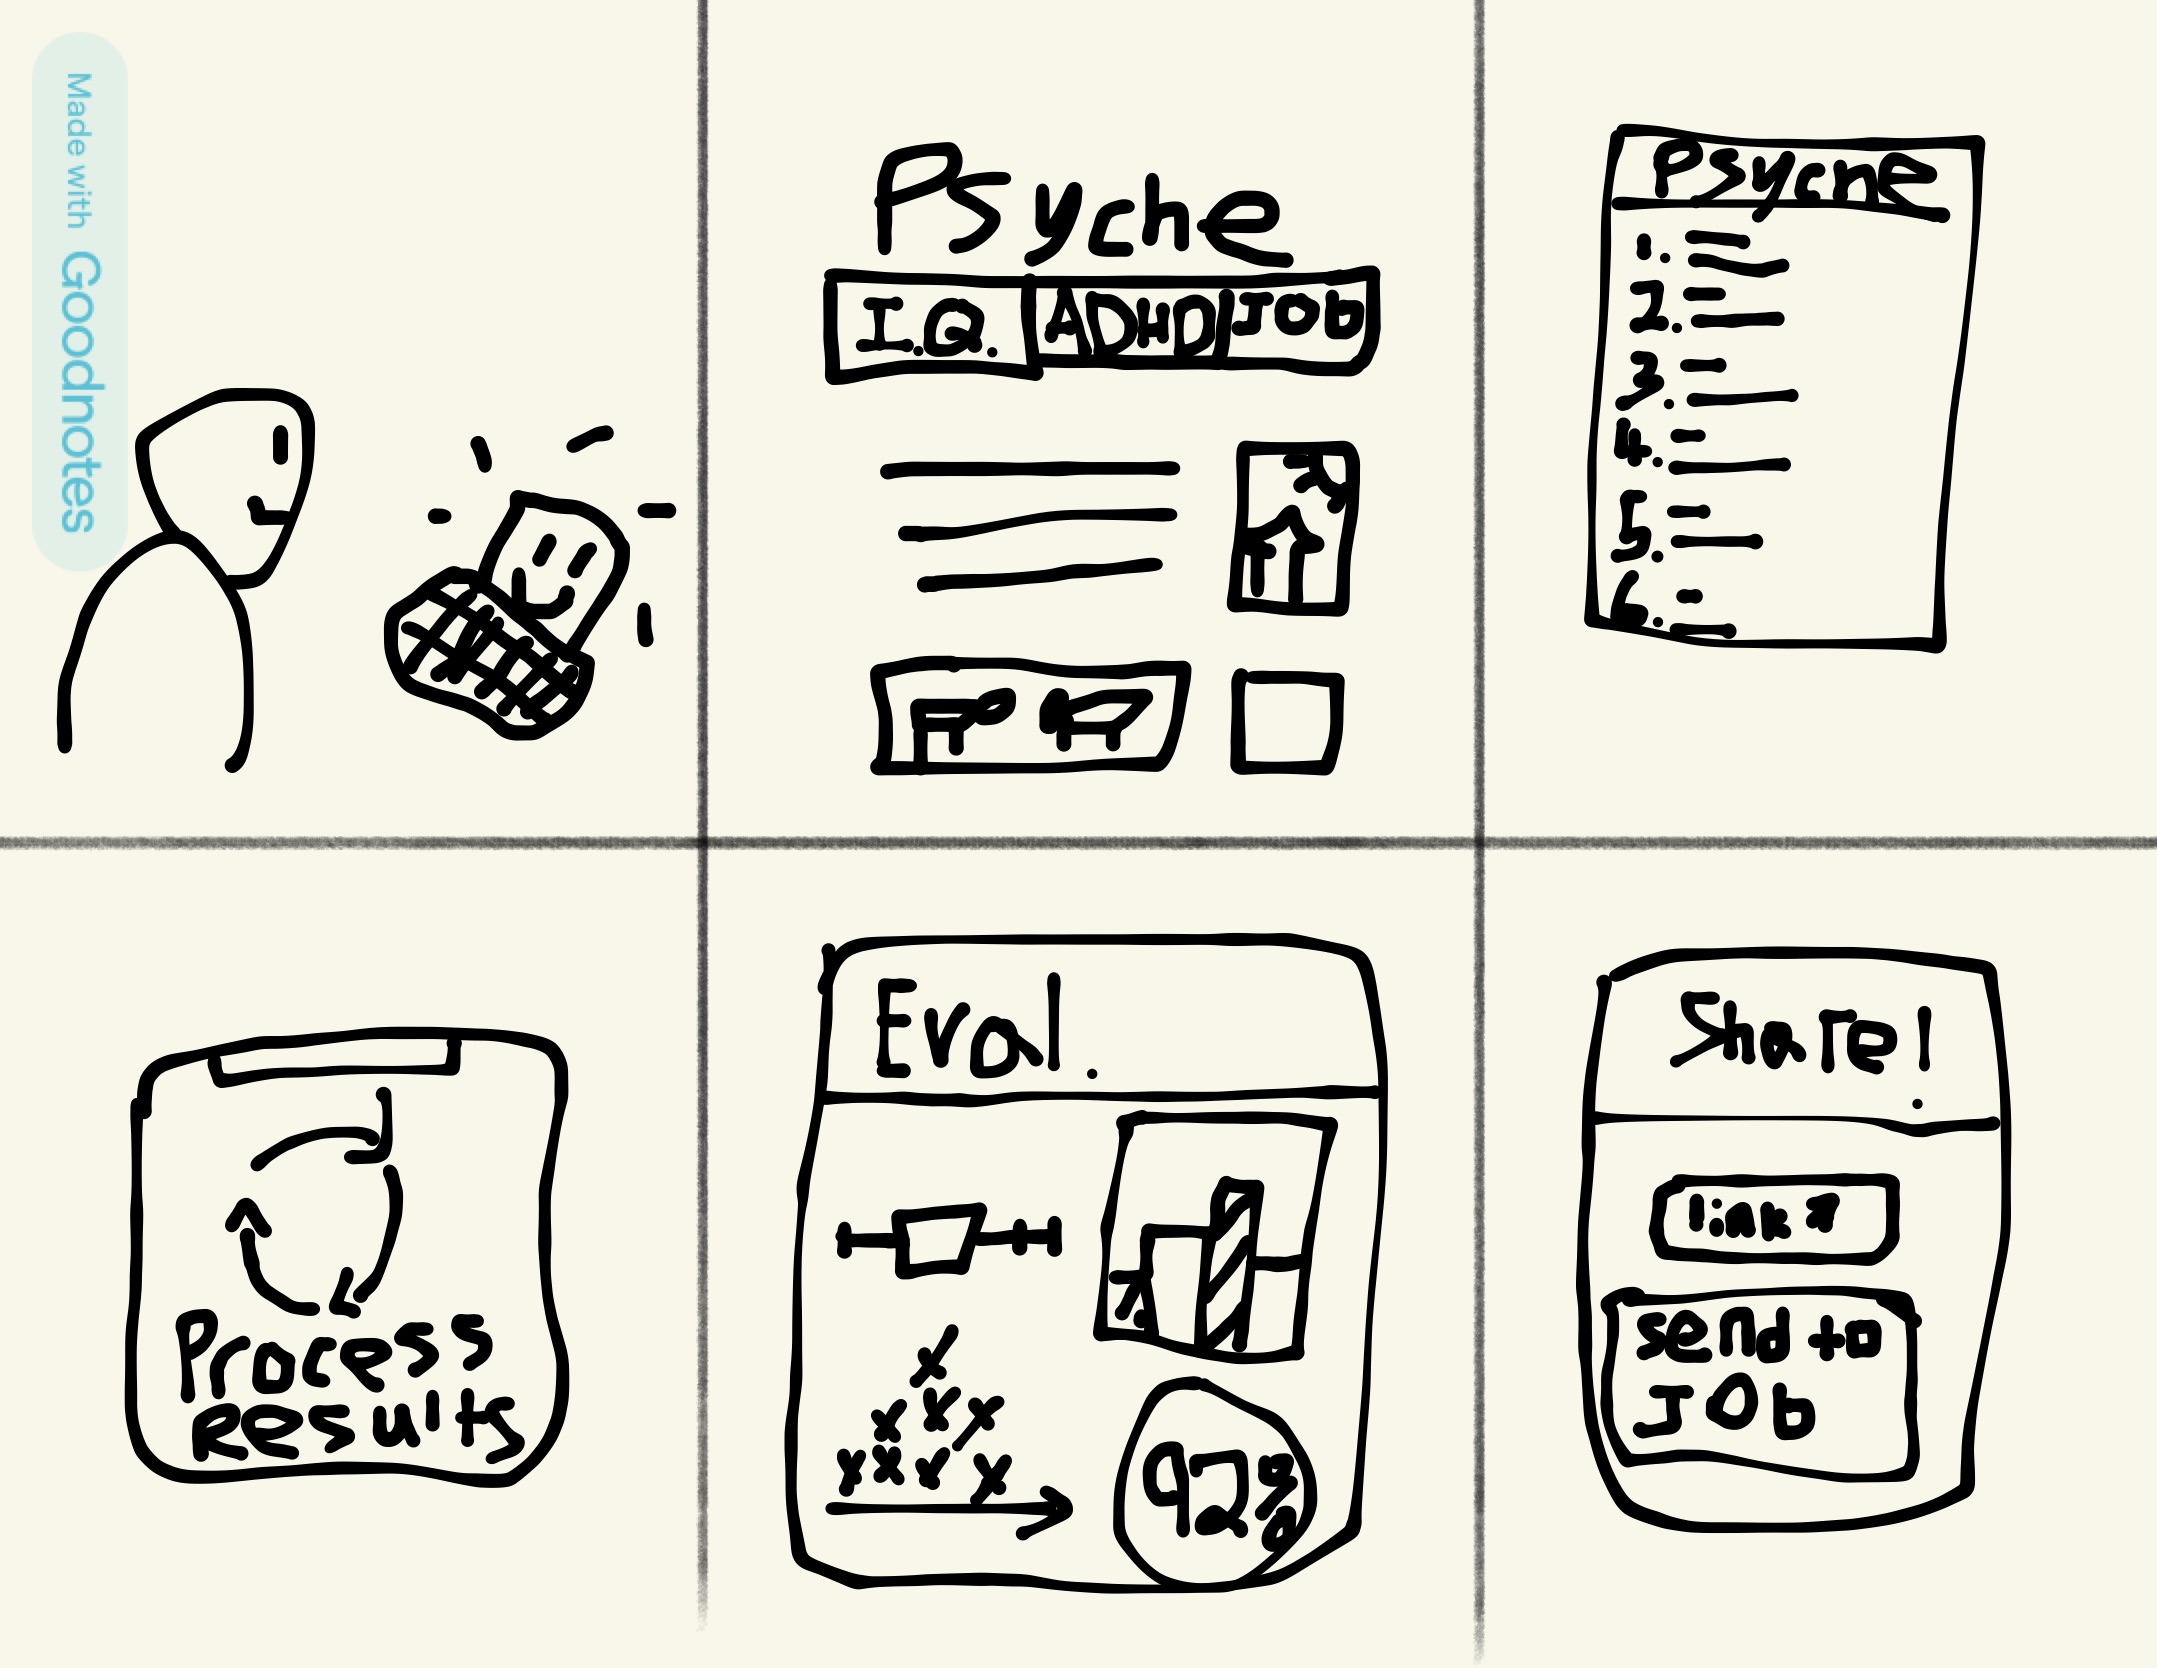 Made with Goodnotes
Psyche
I.Q. ADHD Job
Psyche
1.
2.
3.
4.
5.
6.
Process
Results
Eval.
92%
Share!
link
send to
JOb